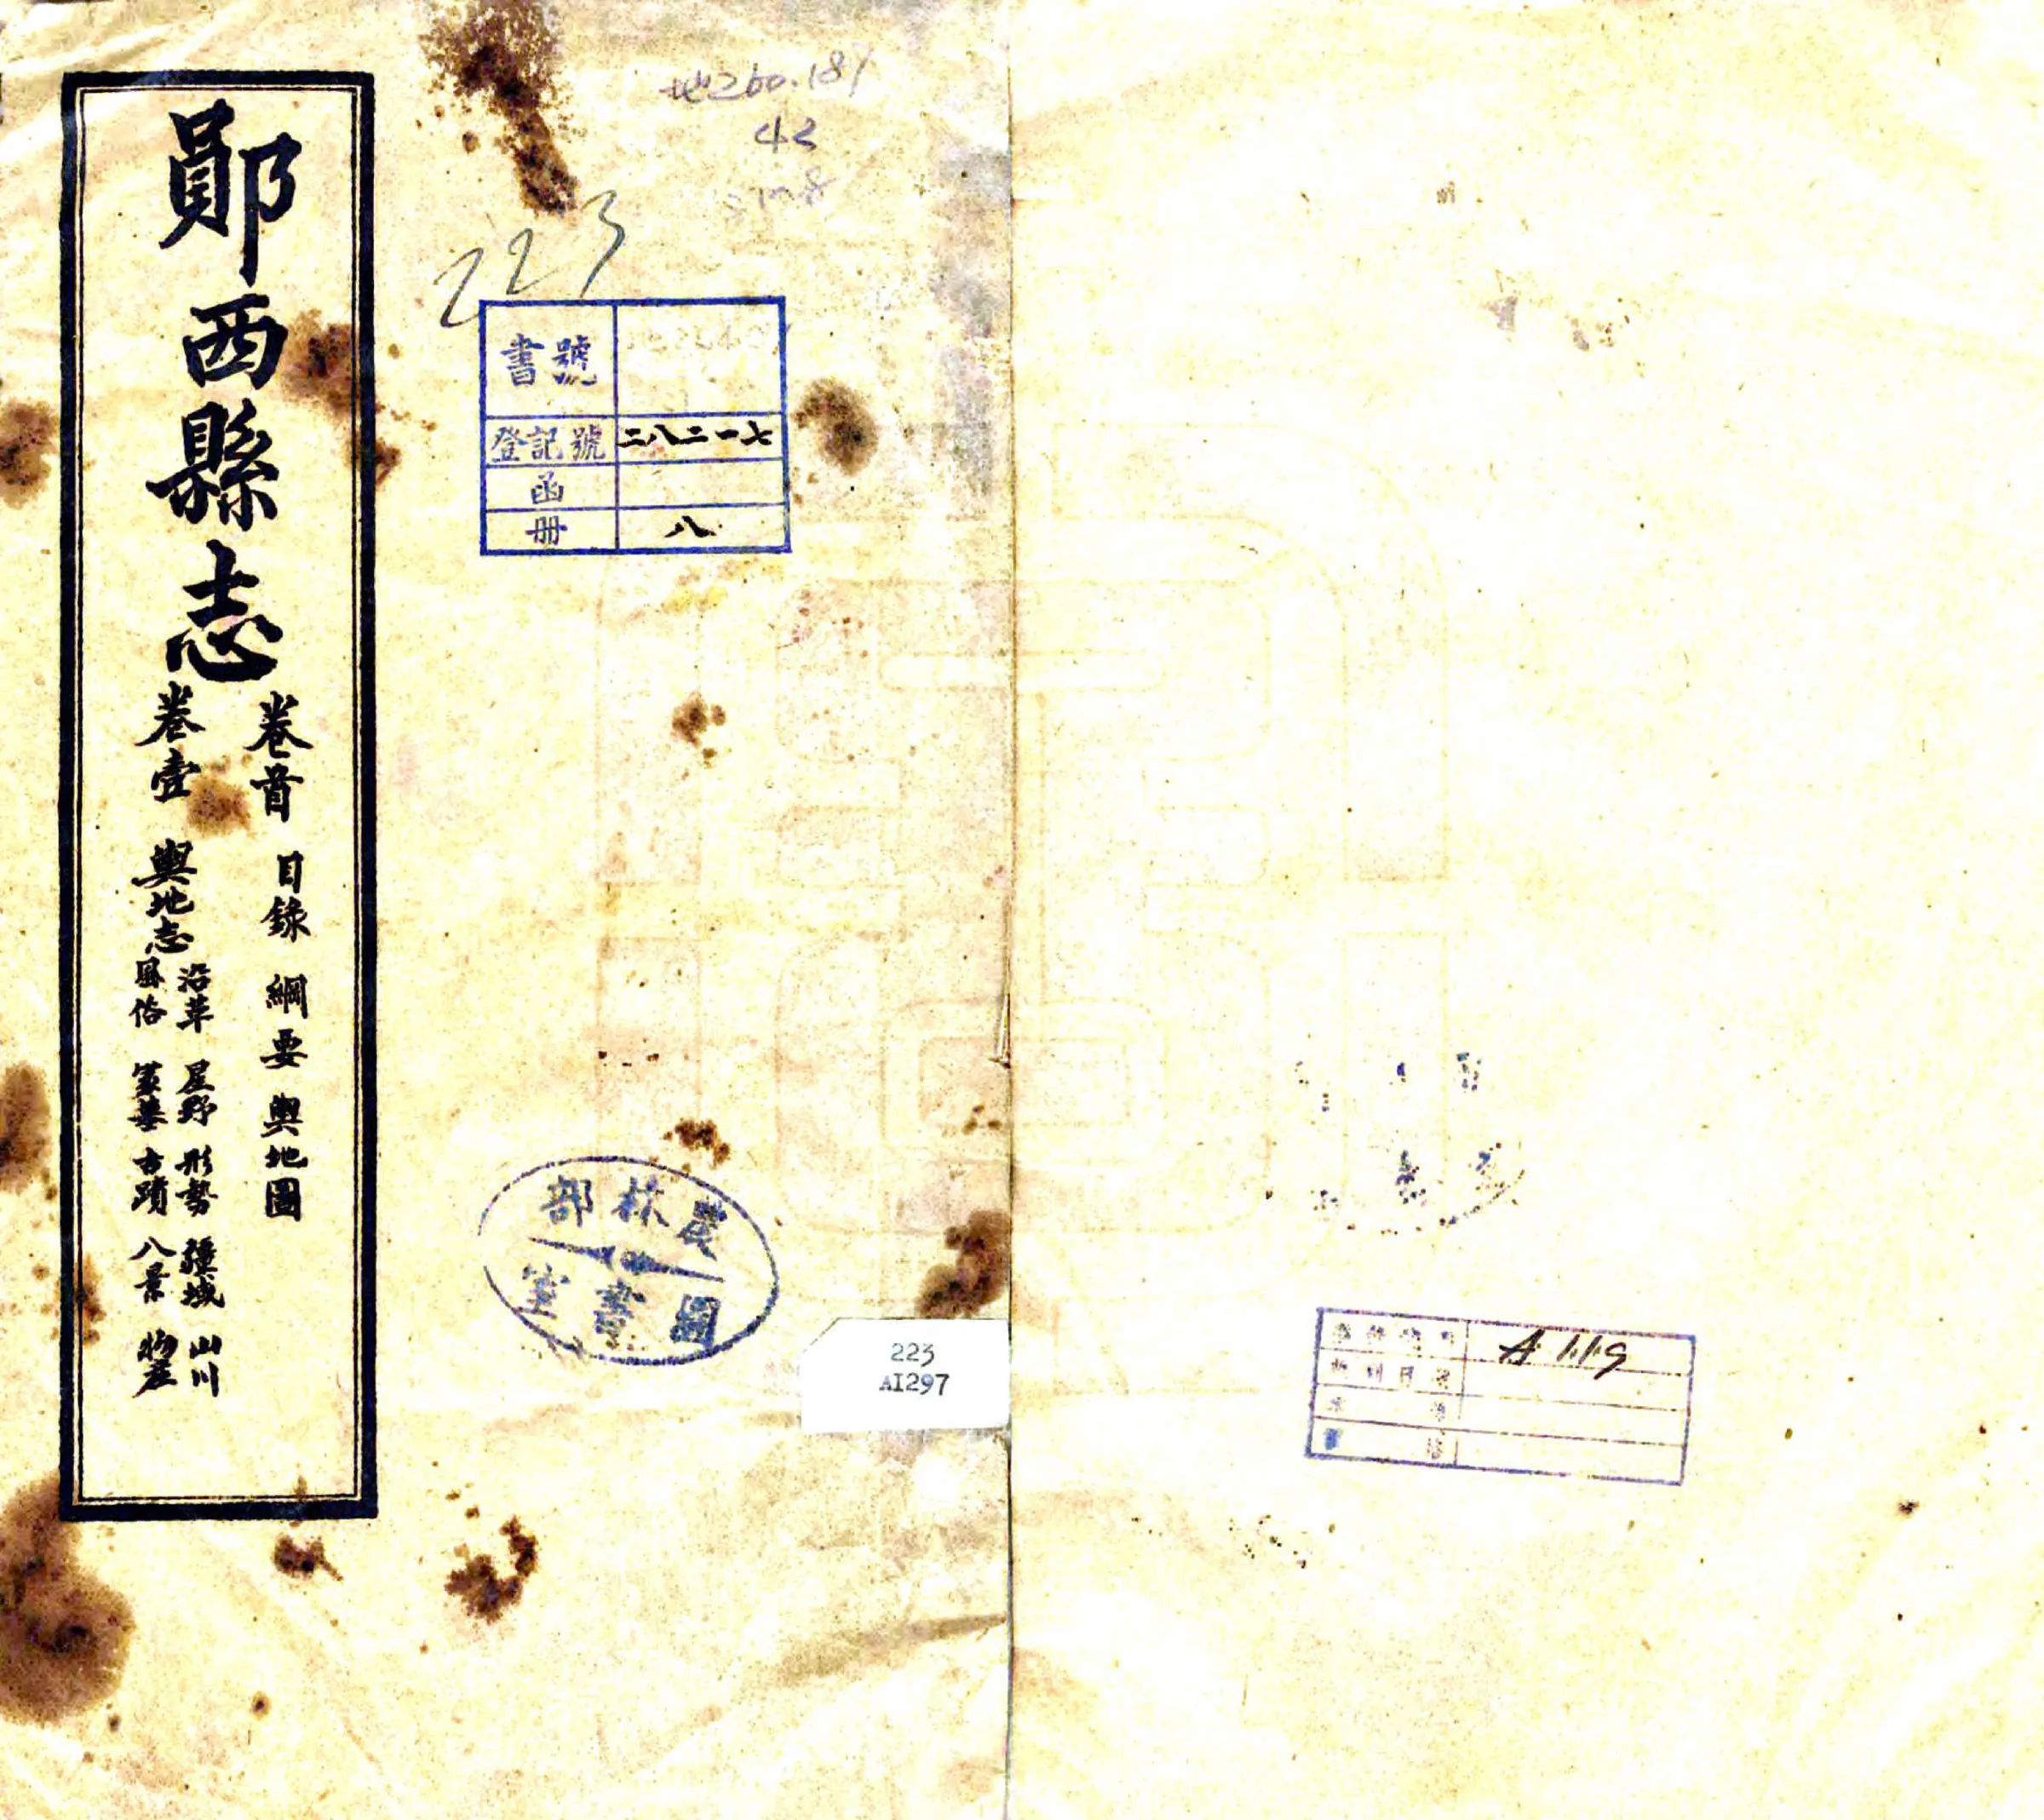 鄖西縣志
卷首 目錄 綱要 輿地圖
卷壹 輿地志
沿革 星野 形勢 疆域 山川
風俗 冢墓 古蹟 八景 物產
地260.181
42
223
書號
登記號 二八二一七
函
册 八
農林部
圖書室
223
AI297
A 119